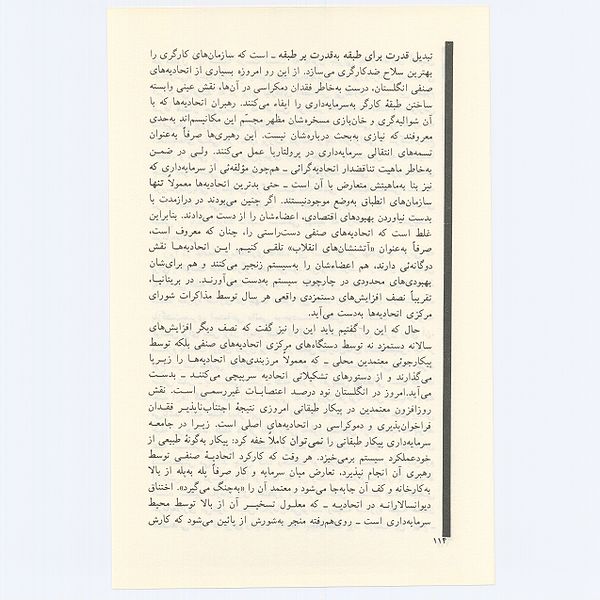 تبدیل قدرت برای طبقه به‌قدرت بر طبقه ـ است که سازمان‌های کارگری را
بهترین سلاح ضدکارگری می‌سازد. از این رو امروزه بسیاری از اتحادیه‌های
صنفی انگلستان، درست به‌خاطر فقدان دمکراسی در آن‌ها، نقش عینی وابسته
ساختن طبقهٔ کارگر به‌سرمایه‌داری را ایفاء می‌کنند. رهبران اتحادیه‌ها که با
آن شوالیه‌گری و خان‌بازی مسخره‌شان مظهر مجسّم این مکانیسم‌اند به‌حدی
معروفند که نیازی به‌بحث درباره‌شان نیست. این رهبری‌ها صرفاً به‌عنوان
تسمه‌های انتقالی سرمایه‌داری در پرولتاریا عمل می‌کنند. ولـی در ضمـن
به‌خاطر ماهیت تناقضدار اتحادیه‌گرائی ـ همچون مؤلفه‌ئی از سرمایه‌داری که
نیز بنا به‌ماهیتش متعارض با آن است ـ حتی بدترین اتحادیه‌ها معمولاً تنها
سازمان‌های انطباق به‌وضع موجودنیستند. اگر چنین می‌بودند در درازمدت با
بدست نیاوردن بهبودهای اقتصادی، اعضاءشان را از دست می‌دادند. بنابراین
غلط است که اتحادیه‌های صنفی دست‌راستی را، چنان که معروف است،
صرفاً به‌عنوان «آتشنشان‌های انقلاب» تلقـی کنیـم. ایـن اتحادیـه‌هـا نقش
دوگانه‌ئی دارند، هم اعضاءشان را به‌سیستم زنجیر می‌کنند و هم برای‌شان
بهبودی‌های محدودی در چارچوب سیستم به‌دست می‌آورنـد. در بریتانیـا،
تقریباً نصف افزایش‌های دستمزدی واقعی هر سال توسط مذاکرات شورای
مرکزی اتحادیه‌ها به‌دست می‌آید.
حال که این را گفتیم باید این را نیز گفت که نصف دیگر افزایش‌های
سالانه دستمزد نه توسط دستگاه‌های مرکزی اتحادیه‌های صنفی بلکه توسط
پیکارجوئی معتمدین محلی ـ که معمولاً مرزبندی‌های اتحادیه‌هـا را زیـرپا
می‌گذارند و از دستورهای تشکیلاتی اتحادیه سرپیچی می‌کننـد ـ بدسـت
می‌آید.امروز در انگلستان نود درصـد اعتصابـات غیررسمـی اسـت. نقش
روزافزون معتمدین در پیکار طبقاتی امروزی نتیجهٔ اجتناب‌ناپذیـر فقـدان
فراخوان‌پذیری و دموکراسی در اتحادیه‌های اصلی است. زیـرا در جامعـه
سرمایه‌داری پیکار طبقاتی را نمی‌توان کاملاً خفه کرد: پیکار به‌گونهٔ طبیعی از
خودعملکرد سیستم برمی‌خیزد. هر وقت که کارکرد اتحادیـهٔ صنفـی توسط
رهبری آن انجام نپذیرد، تعارض میان سرمایه و کار صرفاً پله به‌پله از بالا
به‌کارخانه و کف آن جابه‌جا می‌شود و معتمد آن را «به‌چنگ می‌گیرد». اختناق
دیوانسالارانـه در اتحادیـه ـ که معلـول تسخیـر آن از بالا توسط محیط
سرمایه‌داری است ـ روی‌هم‌رفته منجر به‌شورش از پائین می‌شود که کارش
۱۱۲